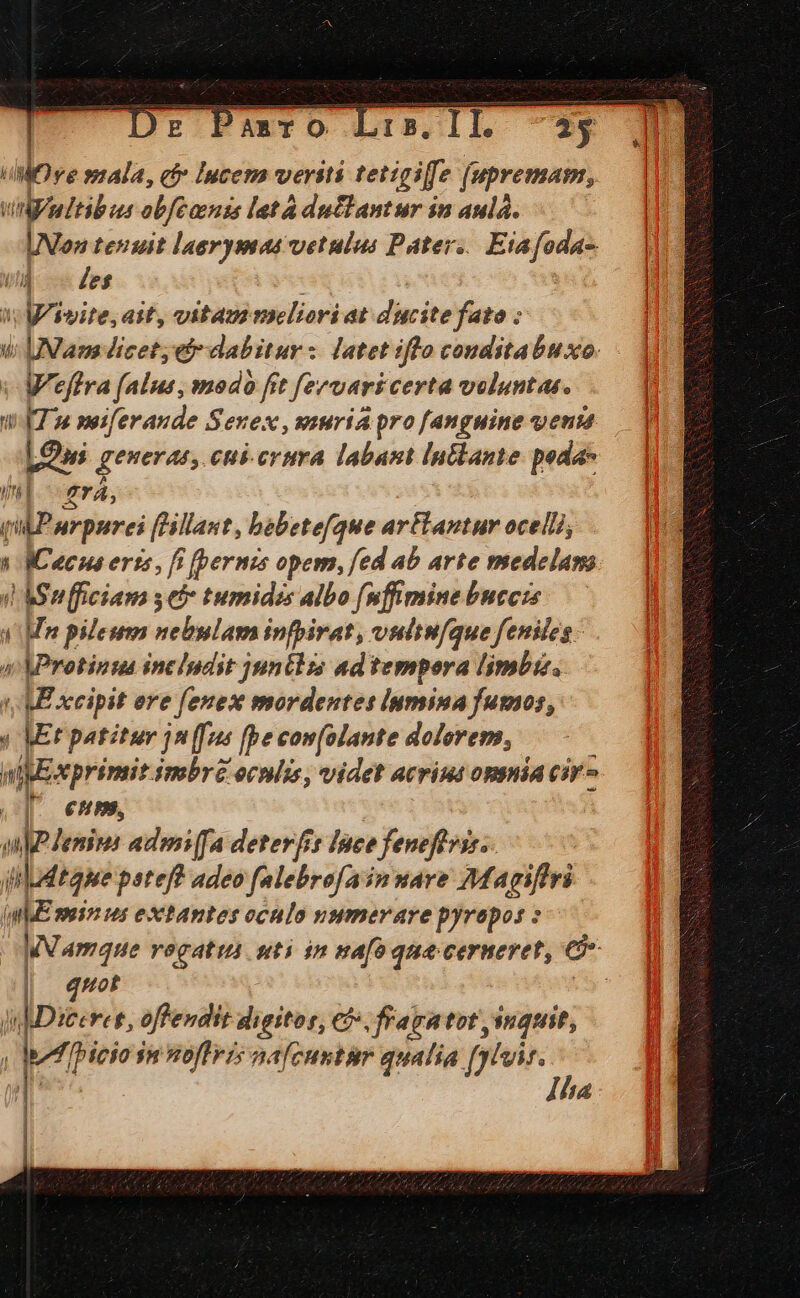 De Parvo Lib. II. 25
Ore mala, & lucem veriti tetigiſſe ſupremam,
Vultibus obſcœnis letà ductantur in aulà.
Non tenuit lacrymas vetulus Pater. Eia ſoda-
les
Vivite, ait, vitam meliori at ducite fato :
Nam licet, & dabitur : latet iſto condita buxo
Veſtra ſalus, modò ſit ſervari certa voluntas.
Tu miſerande Senex, muriâ pro ſanguine venis
Qui generas, cui crura labant luctante poda-
grâ,
Purpurei ſtillant, hebeteſque arctantur ocelli,
Cæcus eris, ſi ſpernis opem, ſed ab arte medelam
Sufficiam ; & tumidis albo ſuffimine buccis
In pileum nebulam inſpirat, vultuſque ſeniles
Protinus includit junctis ad tempora limbis.
Excipit ore ſenex mordentes lumina fumos,
Et patitur juſſus ſpe conſolante dolorem,
Exprimit imbrē oculis, videt acrius omnia cir-
cum,
Plenius admiſſa deterſis luce feneſtris.
Atque poteſt adeo ſalebroſa in nare Magiſtri
Eminus extantes oculo numerare pyropos :
Namque rogatus uti in naſo quæ cerneret, &
quot
Diceret, oſtendit digitos, &, fraga tot, inquit,
Aſpicio in noſtris naſcuntur qualia ſylvis.
Illa